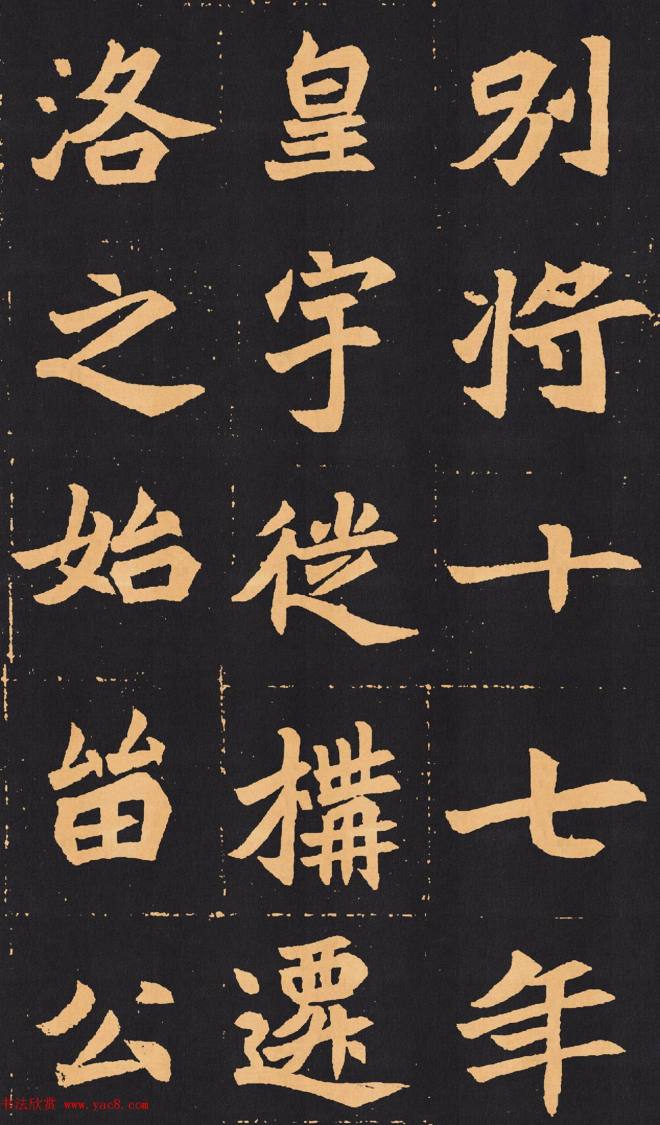 别将十七年
皇宇徙構遷
洛之始㽞公
书法欣赏 www.yac8.com